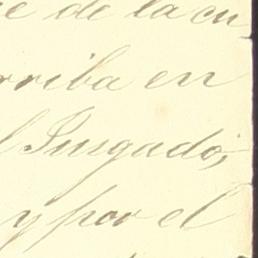 de la cu
rriba en
l Jusgado;
y por el